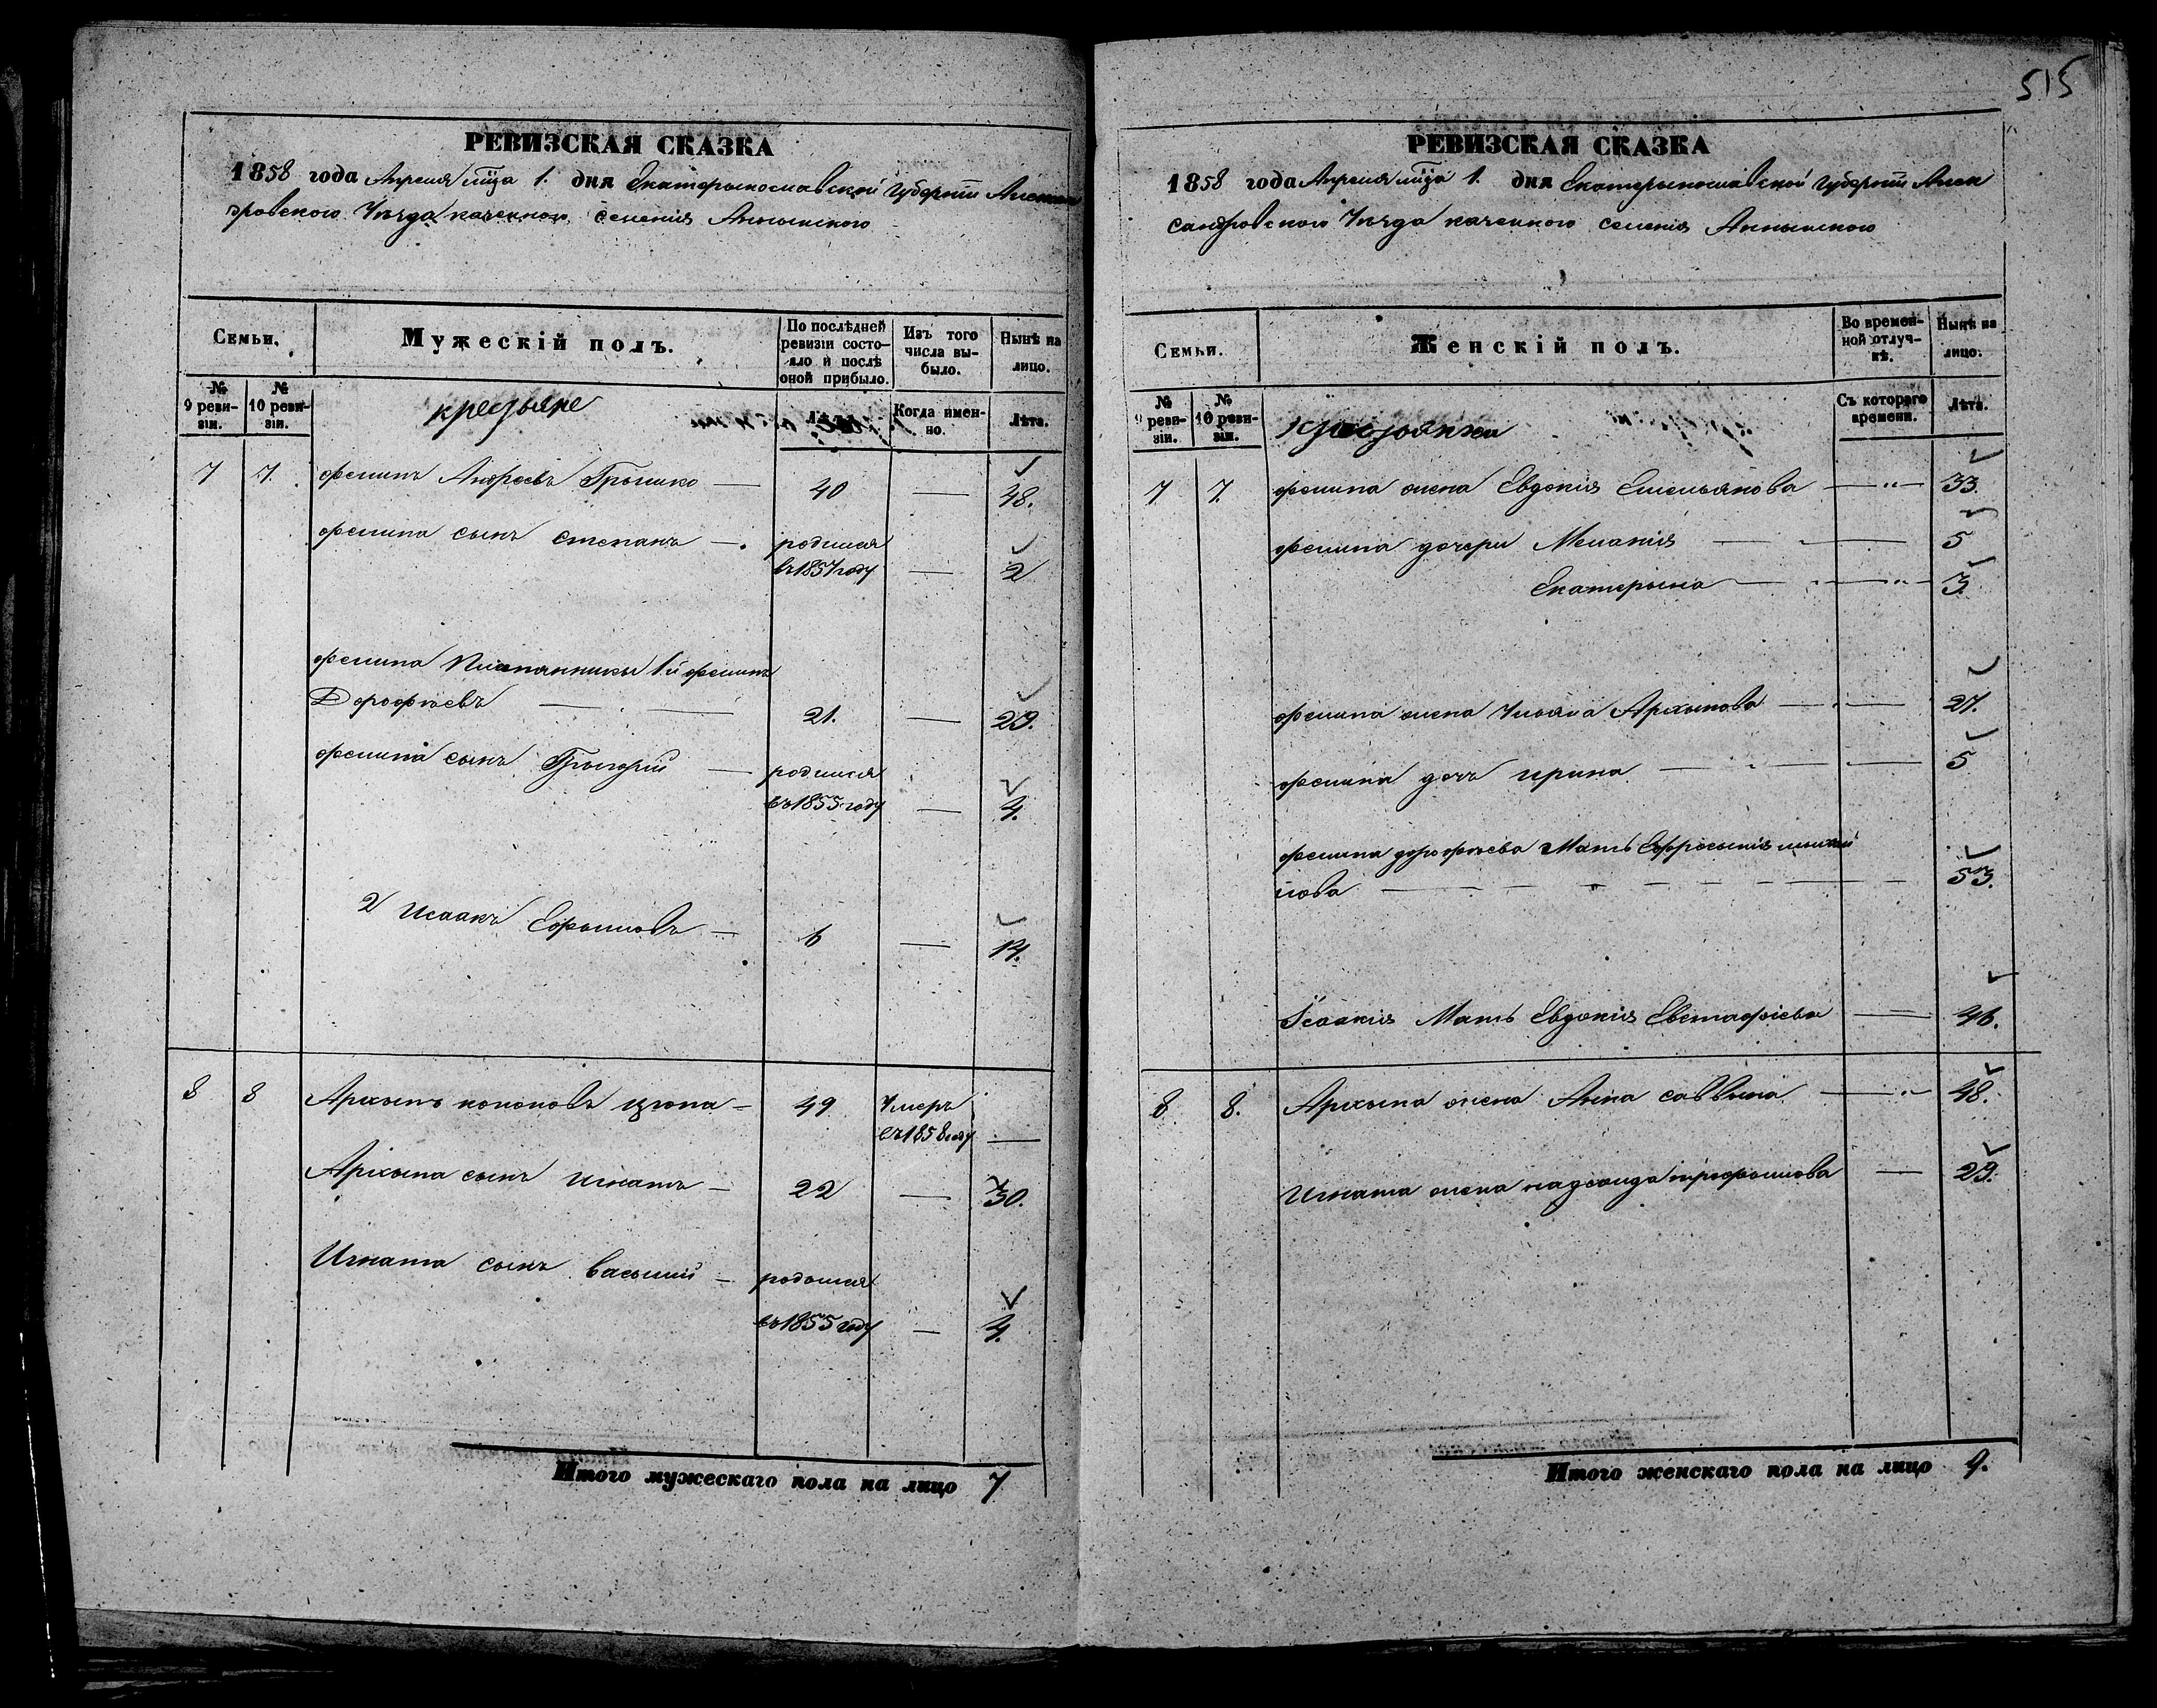 515
РЕВИЗСКАЯ СКАЗКА
1858 года Апреля мца 1. дня Екатерынославской Губернiи Александ
ровского Уѣзда казенного селенiя Аннынского
Семьи.
Мужескій полъ.
По послѣдней ревизіи состояло и послѣ оной прибыло.
Изъ того числа выбыло.
Нынѣ на лицо.
№ 9 ревизіи.
№ 10 ревизіи.
крестьяне
Лѣта.
Когда именно.
Лѣта.
7 7. Филипъ Андреевъ Грышко — 40 — 48.
Филипа сынъ Степанъ — родился
въ 1857 году — 2
Филипа Племянники 1й Филипъ
Дорофѣевъ — 21. — 29.
Филипа сынъ Грыгорiй — родился
въ 1855 году — 4.
2 Исаакъ Ефрымовъ — 6 — 14.
8 8 Архыпъ кононовъ цюпа — 49 Умеръ
въ 1858 году —
Архыпа сынъ Игнатъ — 22 — 30.
Игната сынъ Васылiй — родылся
въ 1855 году — 4.
Итого мужескаго пола на лицо 7
РЕВИЗСКАЯ СКАЗКА
1858 года Апреля мца 1. дня Екатерынославской Губернiи Алек
сандровского Уѣзда казенного селенiя Аннынского
Семьи.
Женскій полъ.
Во временной отлучкѣ.
Нынѣ на лицо.
№ 9 ревизіи.
№ 10 ревизіи.
крестьянки
Съ котораго времени.
Лѣта.
7 7. Филипа жена Евдокiя Емельянова — " — 33.
Филипа дочери Меланiя — 5
Екатерына — " — 3.
Филипа жена Ульяна Архыпова — 27.
Филипа дочь Ирина — 5
Филипа дорофѣева Мать Ефросынiя михай
лова — 53.
Iсаакiя Мать Евдокiя Евстафiева — 46.
8 8. Архыпа жена Анна саввына — " — 48.
Игната жена надежда трофымова — 29.
Итого женскаго пола на лицо 9.